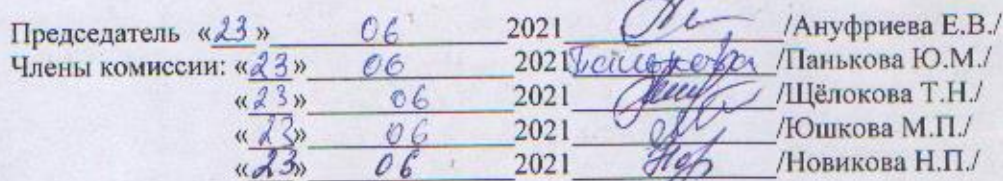 Председатель «23» 06 2021 /Ануфриева Е.В./
Члены комиссии: «23» 06 2021 Панькова /Панькова Ю.М./
«23» 06 2021 /Щёлокова Т.Н./
«23» 06 2021 /Юшкова М.П./
«23» 06 2021 /Новикова Н.П./